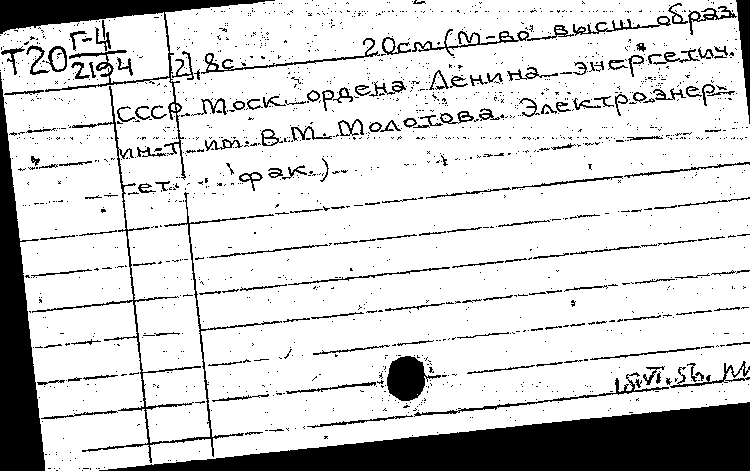 Т20 Г-4/2194 [2], 8с. 20см. (М-во высш. образ.
СССР. Моск. ордена Ленина энергетич.
ин-т им. В.М. Молотова. Электроэнер-
гет. фак.)